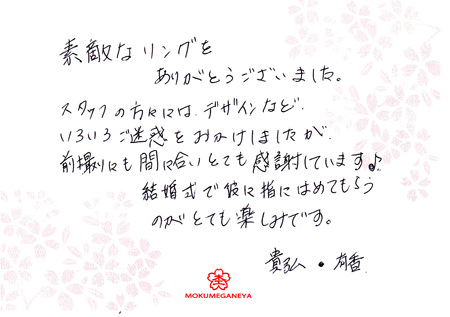 素敵なリングを
ありがとうございました。
スタッフの方々には、デザインなど、
いろいろご迷惑をおかけしましたが、
前撮りにも間に合いとても感謝しています♪
結婚式で彼に指にはめてもらう
のがとても楽しみです。
貴弘・有香
MOKUMEGANEYA